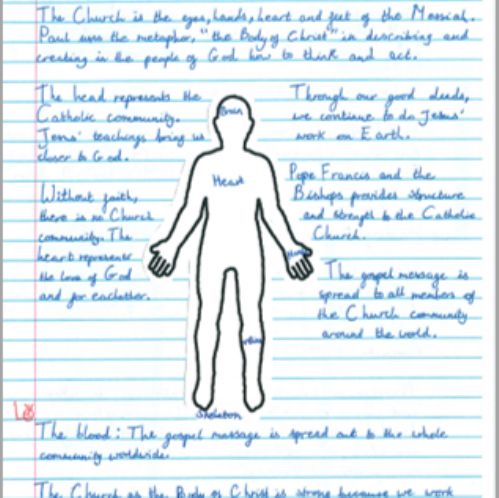 The Church is the eyes, hands, heart and feet of the Messiah.
Paul uses the metaphor, "the Body of Christ" in describing and
creating in the people of God how to think and act.
The head represents the
Catholic community.
Jesus' teachings bring us
closer to God.
Through our good deeds,
we continue to do Jesus'
work on Earth.
Brain
Heart
Without faith,
there is no Church
community. The
heart represents
the love of God
and for eachother.
Pope Francis and the
Bishops provides structure
and strength to the Catholic
Church.
Hands
The gospel message is
spread to all members of
the Church community
around the world.
Skeleton
The blood: The gospel message is spread out to the whole
community worldwide.
The Church as the Body of Christ is strong because we work